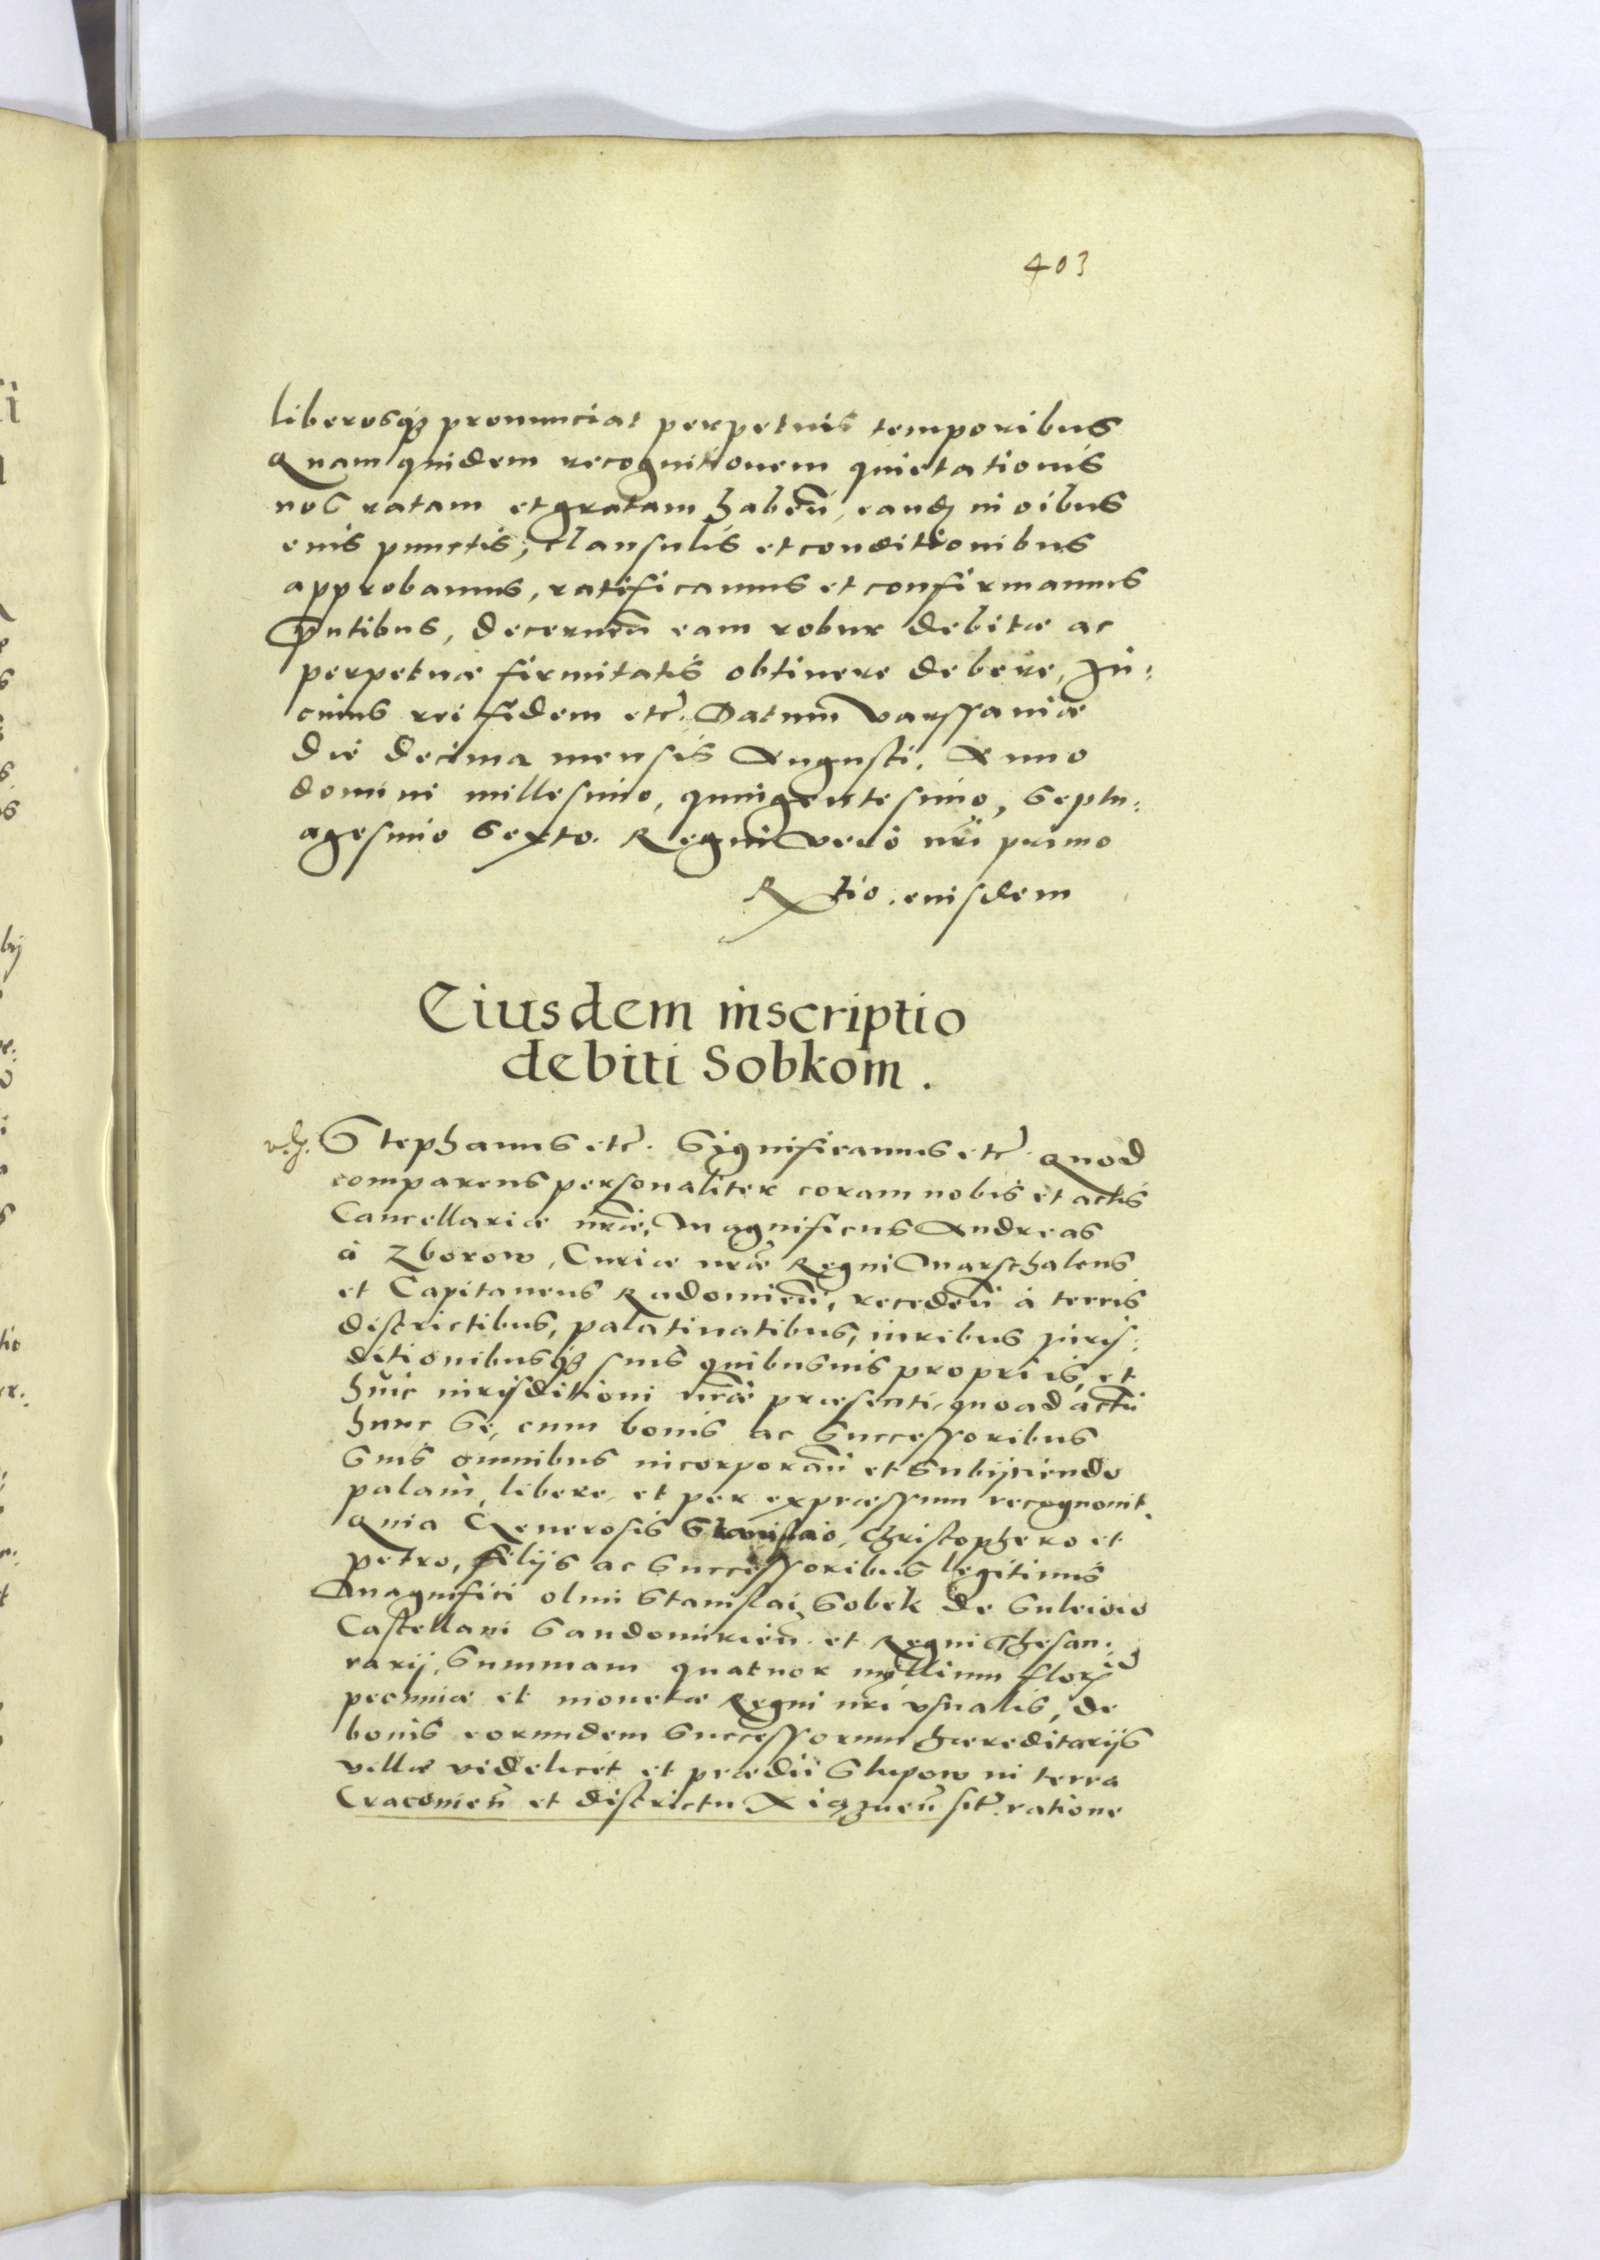 403
liberosq3 pronunciat perpetuis temporibus
Quam quidem recognitionem quietationis
nos ratam et gratam habeñ, eandẽ in oībus
euis punctis, clausulis et conditionibus
approbamus, ratificamus et confirmamus
p̃ntibus, decerneñ eam robur debitæ ac
perpetuæ firmitatis obtinere debere, In:
cuius rei fidem etc̃. Datum Varssaniæ
die decima mensis Augusti. Anno
domini millesimo, quingentesimo, Septu:
agesimo Sexto. Regni vero nr̃i primo
Rtio. eiusdem
Eiusdem inscriptio
debiti Sobkom.
Stephanus etc̃. Significamus etc̃. Quod
comparens personaliter coram nobis et actis
Cancellariæ nr̃æ, Magnificus Andreas
à Zborow, Curiæ nr̃æ Regni Marschaleus
et Capitaneus Radomieñ, recedeñ à terris
districtibus, palatinatibus, iuribus Juris:
ditionibusq3 suis quibusuis proprijs, et
huic iurisditioni nr̃æ præsenti, quoad actũ
hunc se, cum bonis ac Successoribus
Suis omnibus incorporañ et Subijciendo
palam, libere, et per expressum recognouit.
Quia Generosis Stanislao, Christophero et
Petro, filijs ac Successoribus legitimis
Magnifici olim Stanislai Sobek de Suleiow
Castellani Sandomirieñ. et Regni Thesau:
rarij, Summam quatuor millium floȓ
pecuniæ et monetæ Regni nr̃i vsualis, de
bonis eorundem Successorum hæreditarijs
villæ videlicet et prædii Slupow in terra
Cracouieñ et districtu Xiązneñ sit̃. ratione